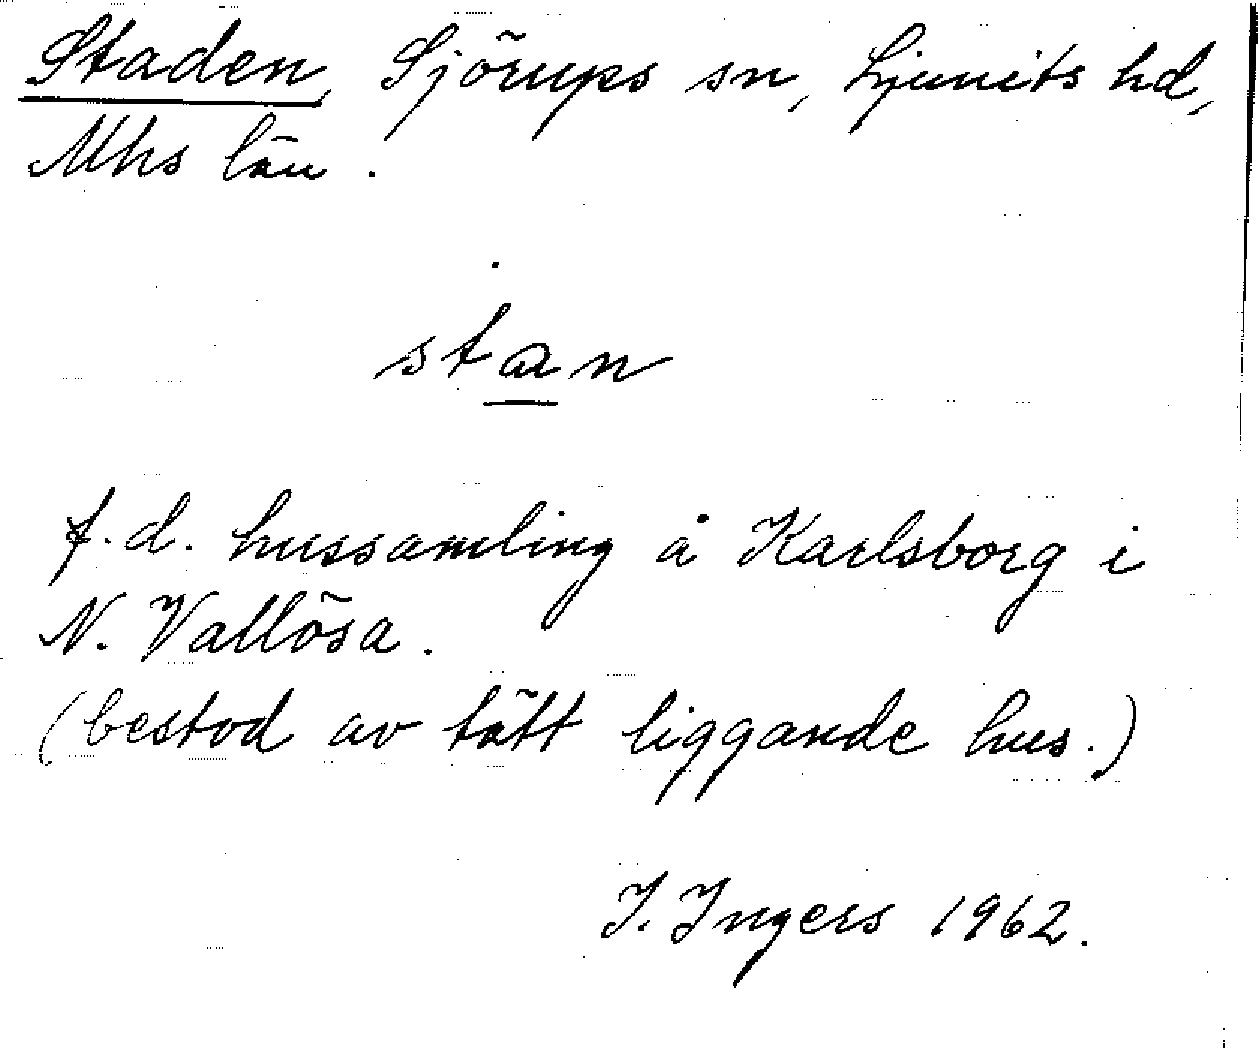 Staden, Sjörups sn, Ljunits hd,
Mhs län.
stan
f.d. hussamling å Karlsborg i
N. Vallösa.
(bestod av tätt liggande hus.)
I. Ingers 1962.